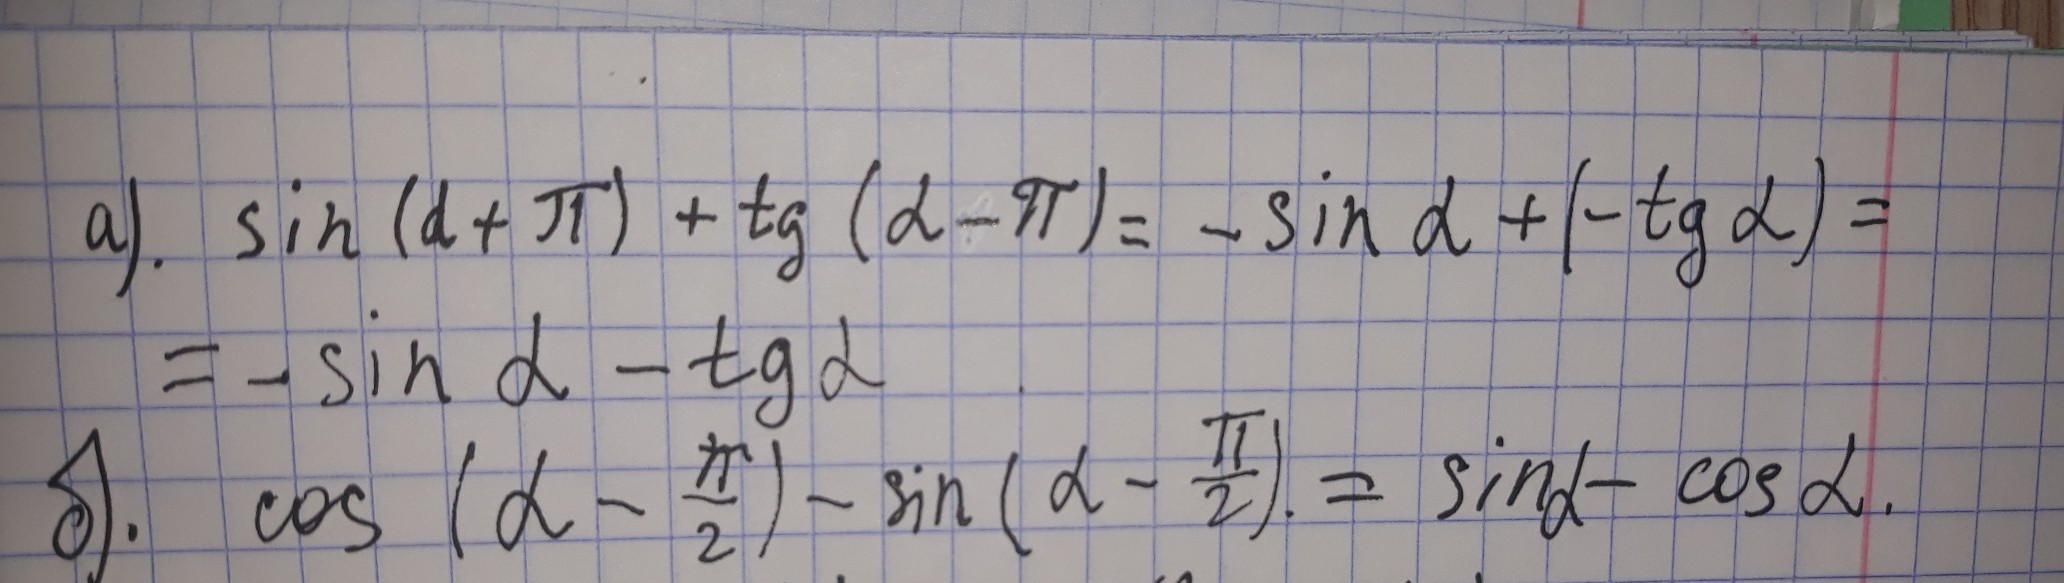 а). sin (α + π) + tg (α - π) = - sin α + (- tg α) =
= - sin α - tg α
б). cos (α - π/2) - sin (α - π/2). = sin α - cos α.